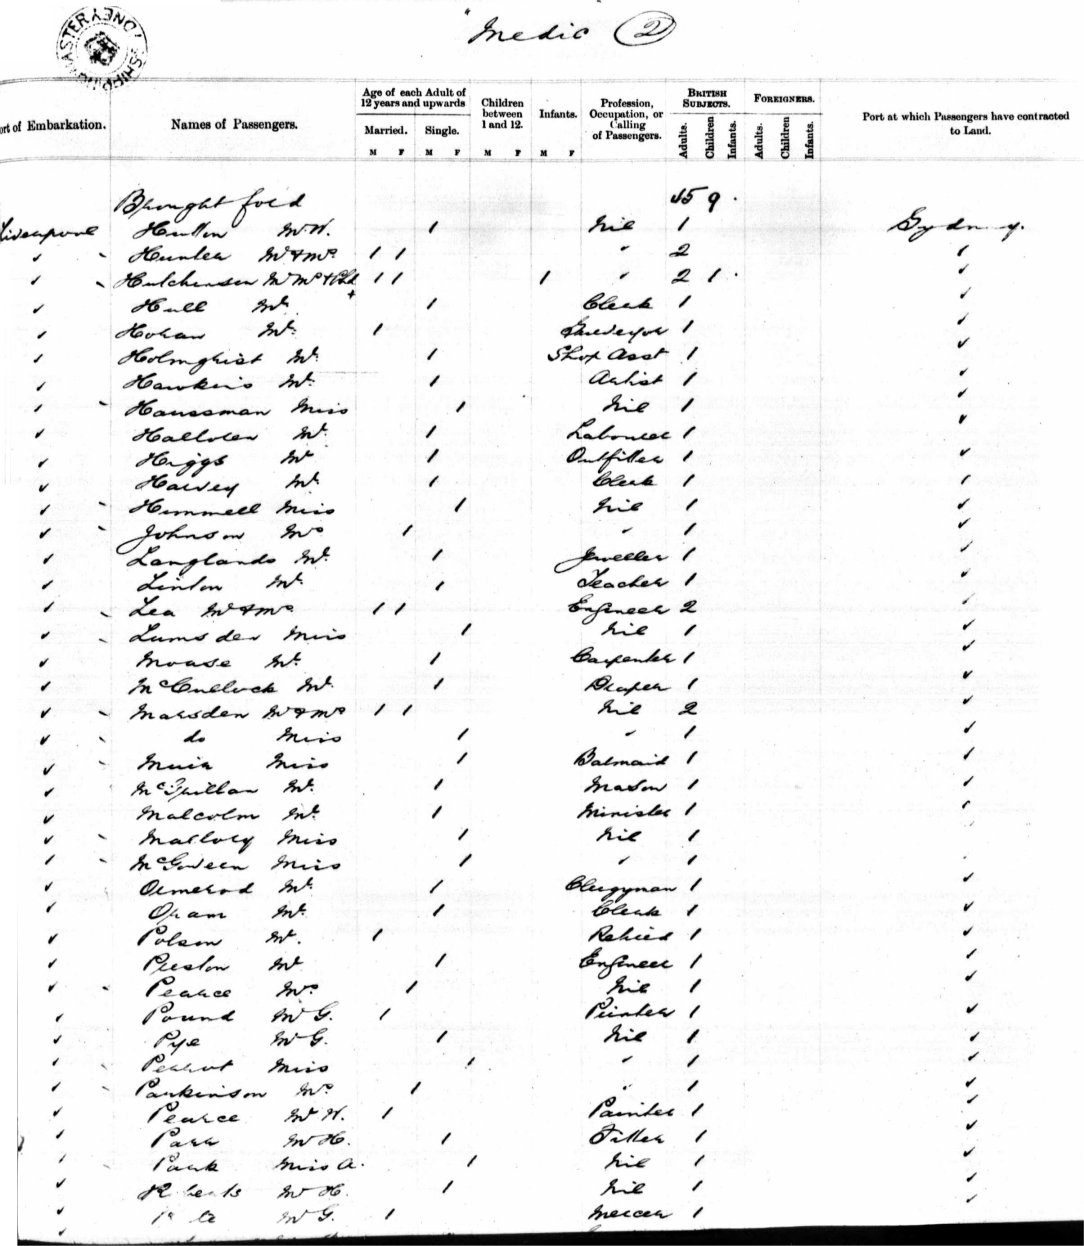 "Medic 2
SHIPPING MASTER SYDNEY
Age of each Adult of 12 years and upwards
Children between 1 and 12.
Infants.
Profession, Occupation, or Calling of Passengers.
BRITISH SUBJECTS.
FOREIGNERS.
ort of Embarkation.
Names of Passengers.
Married.
Single.
Adults.
Children
Infants.
Adults.
Children
Infants.
Port at which Passengers have contracted to Land.
M F M F M F M F
Brought ford 9
Liverpool Hutton Mr W. 1 Nil 1 Sydney.
✓ Hunter Mr & Mrs 1 1 " 2
✓ Hutchinson Mr Mrs & Chd 1 1 1 " 2 1 ✓
✓ Hull Mr 1 Clerk 1 ✓
✓ Mr 1 Surveyor 1 ✓
✓ Holmqhist Mr 1 Shop Asst 1 ✓
✓ Hawkins Mr 1 Artist 1 ✓
✓ Haussman Miss 1 Nil 1 ✓
✓ Halloran Mr 1 Labourer 1 ✓
✓ Higgs Mr 1 Outfitter 1 ✓
✓ Harvey Mr 1 Clerk 1 ✓
✓ Hemmell Miss 1 Nil 1 ✓
✓ Johnson Mrs 1 " 1 ✓
✓ Langlands Mr 1 Jeweller 1 ✓
✓ Linton Mr 1 Teacher 1 ✓
✓ Lea Mr & Mrs 1 1 Engineer 2 ✓
✓ Lumsden Miss 1 Nil 1 ✓
✓ Moase Mr 1 Carpenter 1 ✓
✓ McCullock Mr 1 Draper 1 ✓
✓ Marsden Mr & Mrs 1 1 Nil 2 ✓
✓ do Miss 1 " 1 ✓
✓ Muir Miss 1 Barmaid 1 ✓
✓ McQuillan Mr 1 Mason 1 ✓
✓ Malcolm Mr 1 Minister 1 ✓
✓ Mallory Miss 1 Nil 1 ✓
✓ McGovern Miss 1 " 1
✓ Ormerod Mr 1 Clergyman 1 ✓
✓ Oram Mr 1 Clerk 1 ✓
✓ Polson Mr. 1 Retired 1 ✓
✓ Preston Mr 1 Engineer 1 ✓
✓ Pearce Mrs 1 Nil 1 ✓
✓ Pound Mr G. 1 Printer 1 ✓
✓ Pye Mr G. 1 Nil 1 ✓
✓ Perrot Miss 1 " 1 ✓
✓ Parkinson Mrs 1 " 1 ✓
✓ Pearce Mr H. 1 Painter 1 ✓
✓ Parr Mr H. 1 Fitter 1 ✓
✓ Park Miss A. 1 Nil 1 ✓
✓ Roberts Mr H. 1 Nil 1 ✓
✓ Mr G. 1 Mercer 1 ✓